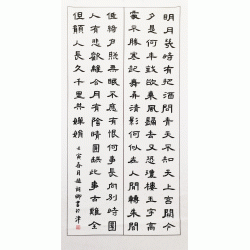 明月幾時有把酒問青天不知天上宮闕今
夕是何年我欲乘風歸去又恐瓊樓玉宇高
處不勝寒起舞弄清影何似在人間轉朱閣
低綺戶照無眠不應有恨何事長向別時圓
人有悲歡離合月有陰晴圓缺此事古難全
但願人長久千里共嬋娟
壬寅春月 書於津